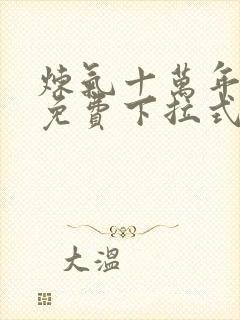 煉氣十萬年
免費下拉式
大溫